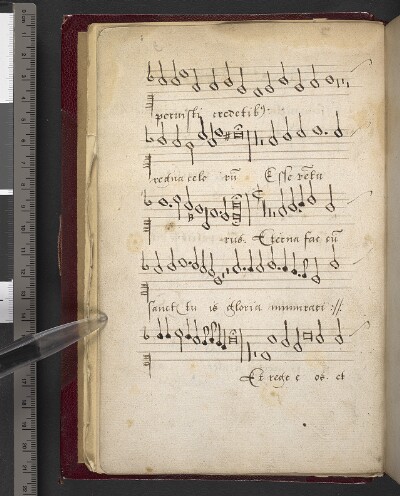 permisti credetibꝫ.
regna celo rũ. Esse vẽtu
rus. Eterna fac cũ
sanct tu is gloria numerari ://:
Et rege e os. et